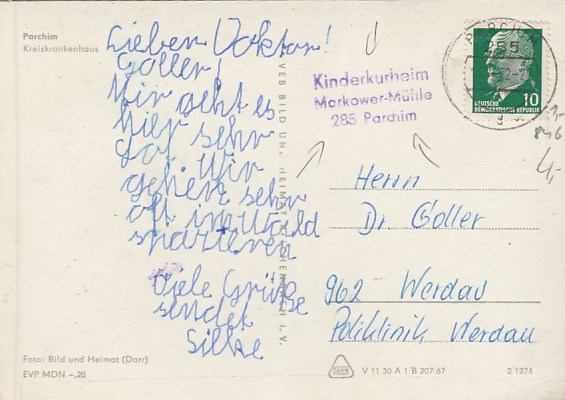 Parchim
Kreiskrankenhaus
Lieber Doktor!
Goller!
Mir geht es
hier sehr
gut. Wir
gehen sehr
oft im Wald
spazieren
Viele Grüße
sendet
Silke
Foto: Bild und Heimat (Darr)
EVP MDN -,20
VEB BILD UN. HEIMAT REICHENBACH I. V.
Kinderkurheim
Markower-Mühle
285 Parchim
PARCHIM
285
10
DEUTSCHE
DEMOKRATISCHE REPUBLIK
846
4,-
Herrn
Dr. Goller
962 Werdau
Poliklinik Werdau
V 11 50 A 1/B 207/67
2/1274